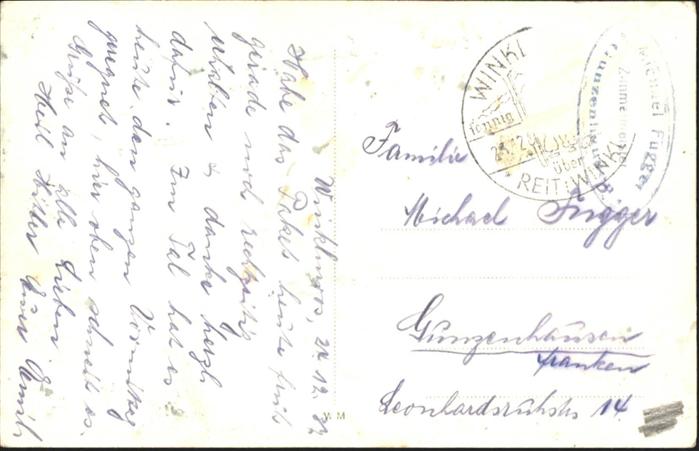 Winklmoos, 24.12.34
Habe das Paket heute früh
gerade und rechtzeitig
erhalten & danke herzl
dafür. Im Tal hat es
heute den ganzen Vormittag
geregnet, hier oben schneit es.
Grüße an alle Lieben
Heil Hitler Euer Emil
WINKL
REIT I WINKL
über
Michael Fugger
Zimmermeister
Gunzenhausen
Familie
Michael Fugger
Gunzenhausen
Franken
Leonhardsruhstr 14